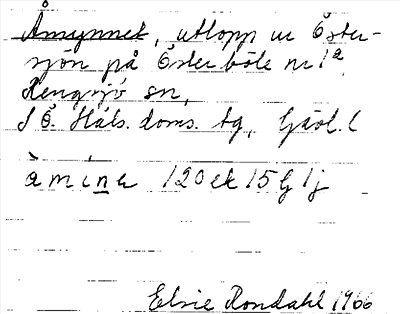 Åmynnet, utlopp ur Öster-
sjön på Österböle nr 1ª
Rengsjö sn,
S Ö. Häls. doms. tg, Gävl. l
åmine 120 ek 15 G 1j
Elsie Rondahl 1966